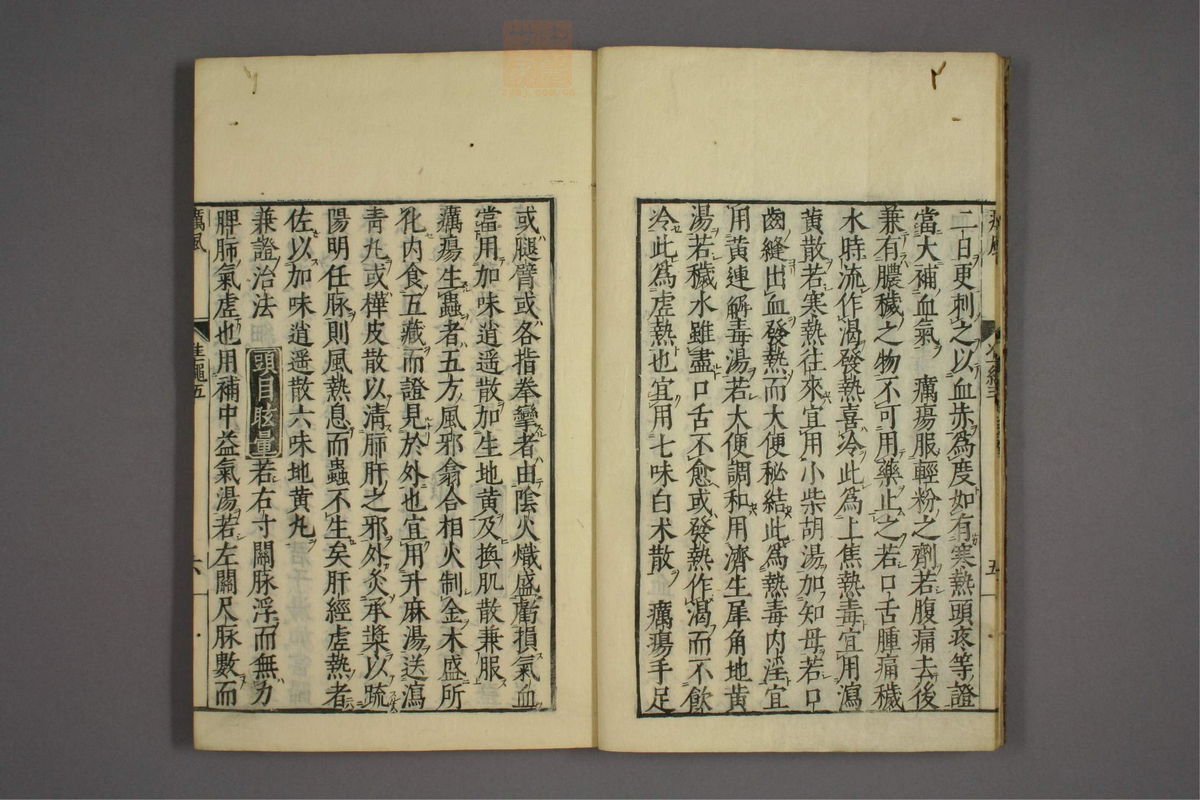 二日更刺之以血赤為度如有寒熱頭疼等證
當大補血氣　癘瘍服輕粉之劑若腹痛去後
兼有膿穢之物不可用藥止之若口舌腫痛穢
水時流作渴發熱喜冷此為上焦熱毒宜用瀉
黄散若寒熱往來宜用小柴胡湯加知母若口
齒縫出血發熱而大便秘結此為熱毒内淫宜
用黄連解毒湯若大便調和用濟生犀角地黄
湯若穢水雖盡口舌不愈或發熱作渴而不飲
冷此為虚熱也宜用七味白术散　癘瘍手足
五
或腿臂或各指拳攣者由陰火熾盛虧損氣血
當用加味逍遥散加生地黄及換肌散兼服
癘瘍生蟲者五方風邪翕合相火制金木盛所
化内食五藏而證見於外也宜用升麻湯送瀉
青丸或樺皮散以清肺肝之邪外灸承漿以疏
陽明任脉則風熱息而蟲不生矣肝經虚熱者
佐以加味逍遥散六味地黄丸
兼證治法　頭目眩暈若右寸關脉浮而無力
脾肺氣虚也用補中益氣湯若左關尺脉數而
癘風
六